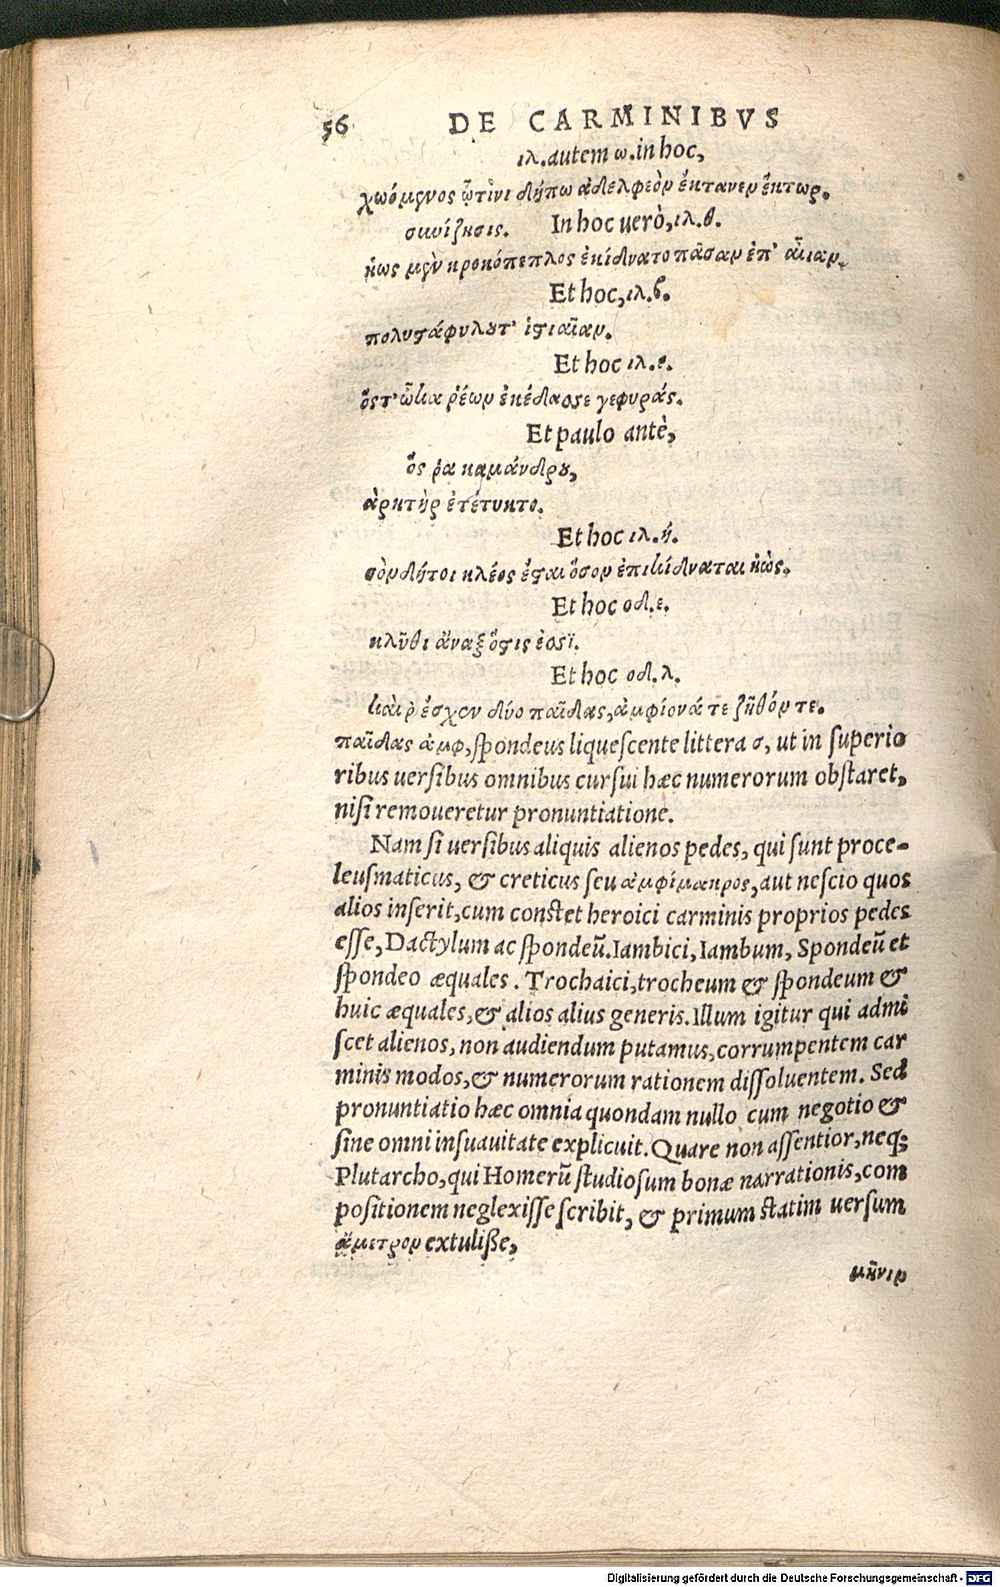 56 DE CARMINIBVS
ιλ. autem ω. in hoc,
χωόμενος ὥτινι δήπω ἀδελφεὸν ἔκτανεν ἕκτωρ.
συνίζησις. In hoc uerò, ιλ. θ.
ἠὼς μὲν κροκόπεπλος ἐκίδνατο πᾶσαν ἐπ' αἶιαν.
Et hoc, ιλ. β.
πολυστάφυλουτ' ἱστιαῖαν.
Et hoc ιλ. ε.
ὅστ' ὦκα ῥέων ἐκέδασσε γεφυράς.
Et paulo antè,
ὅς ῥα καμάνδρου,
ἀρητὴρ ἐτέτυκτο.
Et hoc ιλ. ή.
σὸν δήτοι κλέος ἔσται ὅσον ἐπικίδναται ἠὼς.
Et hoc οδ. ε.
κλῦθι ἄναξ ὅστις ἐσσϊ.
Et hoc οδ. λ.
καίρ ἔσχεν δύο παῖδας, ἀμφίονά τε ζῆθόν τε.
παῖδας ἀμφ, spondeus liquescente littera σ, ut in superio
ribus uersibus omnibus cursui hæc numerorum obstaret,
nisi remoueretur pronuntiatione.
Nam si uersibus aliquis alienos pedes, qui sunt proce-
leusmaticus, & creticus seu ἀμφίμακρος, aut nescio quos
alios inserit, cum constet heroici carminis proprios pedes
esse, Dactylum ac spondeũ. Iambici, Iambum, Spondeũ et
spondeo æquales. Trochaici, trocheum & spondeum &
huic æquales, & alios alius generis. Illum igitur qui admi
scet alienos, non audiendum putamus, corrumpentem car
minis modos, & numerorum rationem dissoluentem. Sed
pronuntiatio hæc omnia quondam nullo cum negotio &
sine omni insuauitate explicuit. Quare non assentior, neq;
Plutarcho, qui Homerũ studiosum bonæ narrationis, com
positionem neglexisse scribit, & primum statim uersum
ἄμετρον extulisse,
μῆνιν
Digitalisierung gefördert durch die Deutsche Forschungsgemeinschaft - DFG